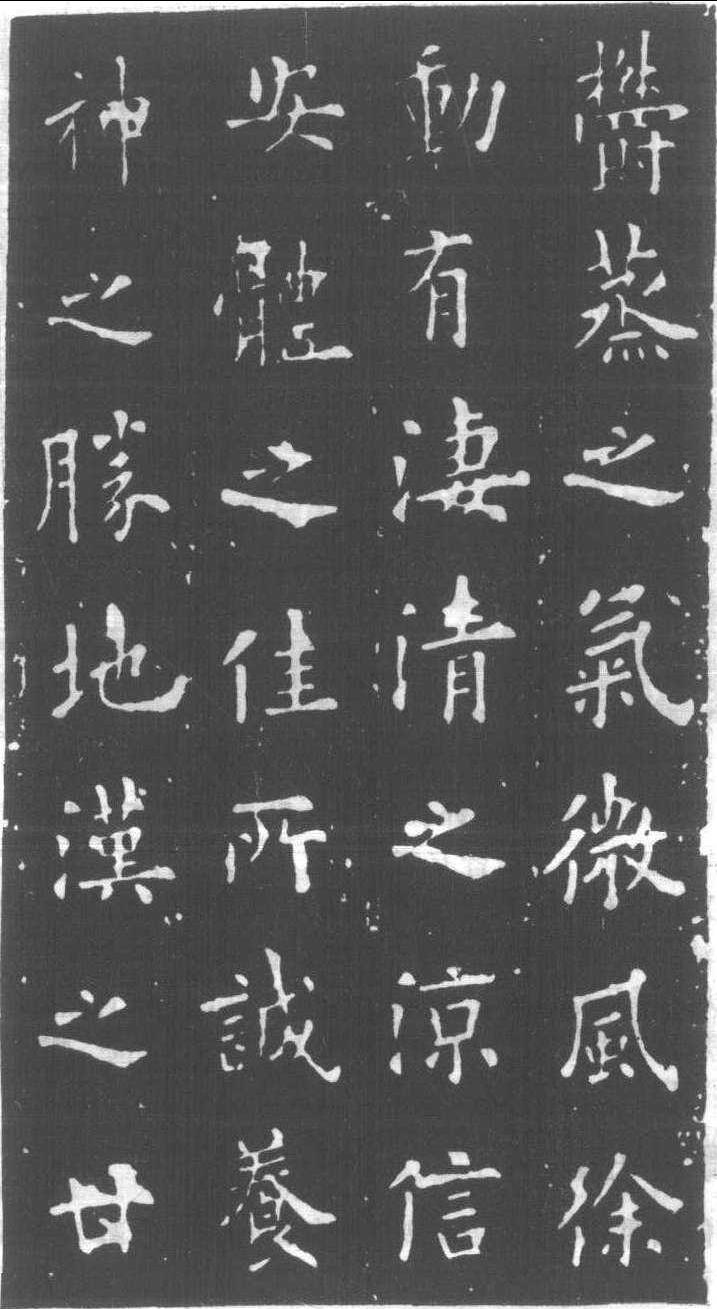 欝蒸之氣微風徐
動有淒清之涼信
安體之佳所誠養
神之勝地漢之甘